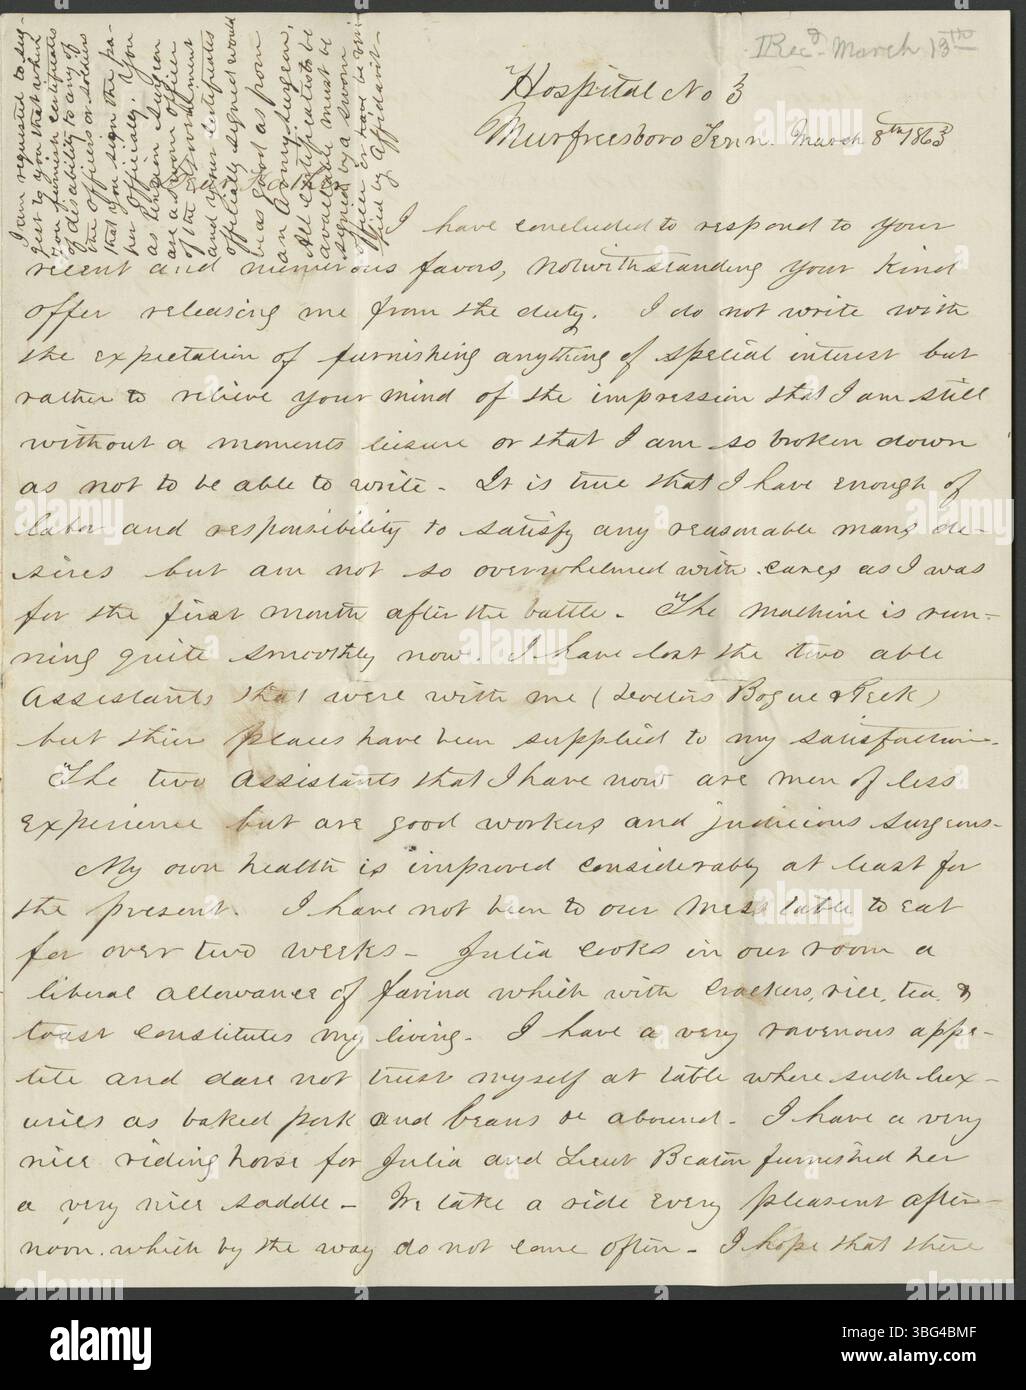 Rec.d March 13th
Hospital No 3
Murfreesboro Tenn. March 8th 1863
Dear Father
I have concluded to respond to your
recent and numerous favors, notwithstanding your kind
offer releasing me from the duty. I do not write with
the expectation of furnishing anything of special interest but
rather to relieve your mind of the impression that I am still
without a moments leisure or that I am so broken down
as not to be able to write - It is true that I have enough of
labor and responsibility to satisfy any reasonable mans de-
sires but am not so overwhelmed with cares as I was
for the first month after the battle - The machine is run-
ning quite smoothly now. I have lost the two able
Assistants that were with me (Doctors Bogue & Peek)
but their places have been supplied to my satisfaction -
The two assistants that I have now are men of less
experience but are good workers and judicious surgeons -
My own health is improved considerably at least for
the present. I have not been to our mess table to eat
for over two weeks - Julia cooks in our room a
liberal allowance of farina which with crackers, rice, tea, &
toast constitutes my living - I have a very ravenous appe-
tite and dare not trust myself at table where such lux-
uries as baked pork and beans do abound - I have a very
nice riding horse for Julia and Lieut Beaton furnished her
a very nice saddle - We take a ride every pleasent after-
noon. which by the way do not come often - I hope that there
I am requested to sug-
gest to you that when
you furnish certificates
of disability to any of
the officers or soldiers
that you sign the pa-
per Officially. You
as Pension Surgeon
are a sworn officer
of the Government
and your certificates
officially signed would
be as good as from
an Army surgeon.
All certificates to be
available must be
signed by a sworn
officer or be veri-
fied by affidavit -
alamy
a
Image ID: 3BG4BMF
www.alamy.com